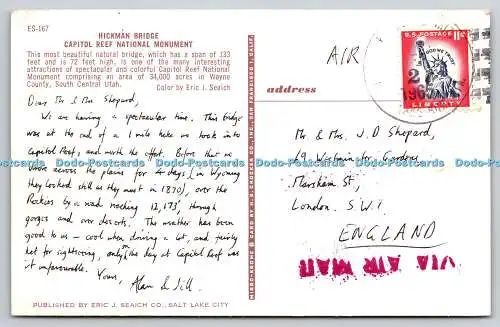 ES-167
HICKMAN BRIDGE
CAPITOL REEF NATIONAL MONUMENT
This most beautiful natural bridge, which has a span of 133
feet and is 72 feet high, is one of the many interesting
attractions of spectacular and colorful Capitol Reef National
Monument comprising an area of 34,000 acres in Wayne
County, South Central Utah.
Color by Eric J. Seaich
Dear Mr & Mrs Shepard,
We are having a spectacular time. This bridge
was at the end of a 1 mile hike we took into
Capitol Reef, and worth the effort. Before that we
drove across the plains for 4 days (in Wyoming
they looked still as they must in 1870), over the
Rockies by a road reaching 12,173', through
gorges and over deserts. The weather has been
good to us – cool when driving a lot, and fairly
hot for sightseeing, only on the day at Capitol Reef was
it unfavourable.
Yours,
Alan & Jill
PUBLISHED BY ERIC J. SEAICH CO., SALT LAKE CITY
AIR
U.S. POSTAGE 11¢
IN GOD WE TRUST
LIBERTY
2
1965
address
Mr & Mrs. J D Shepard,
19 Gardens,
Marsham St,
London. S.W.1
ENGLAND
VIA AIR MAIL
Dodo-Postcards Dodo-Postcards Dodo-Postcards Dodo-Postcards